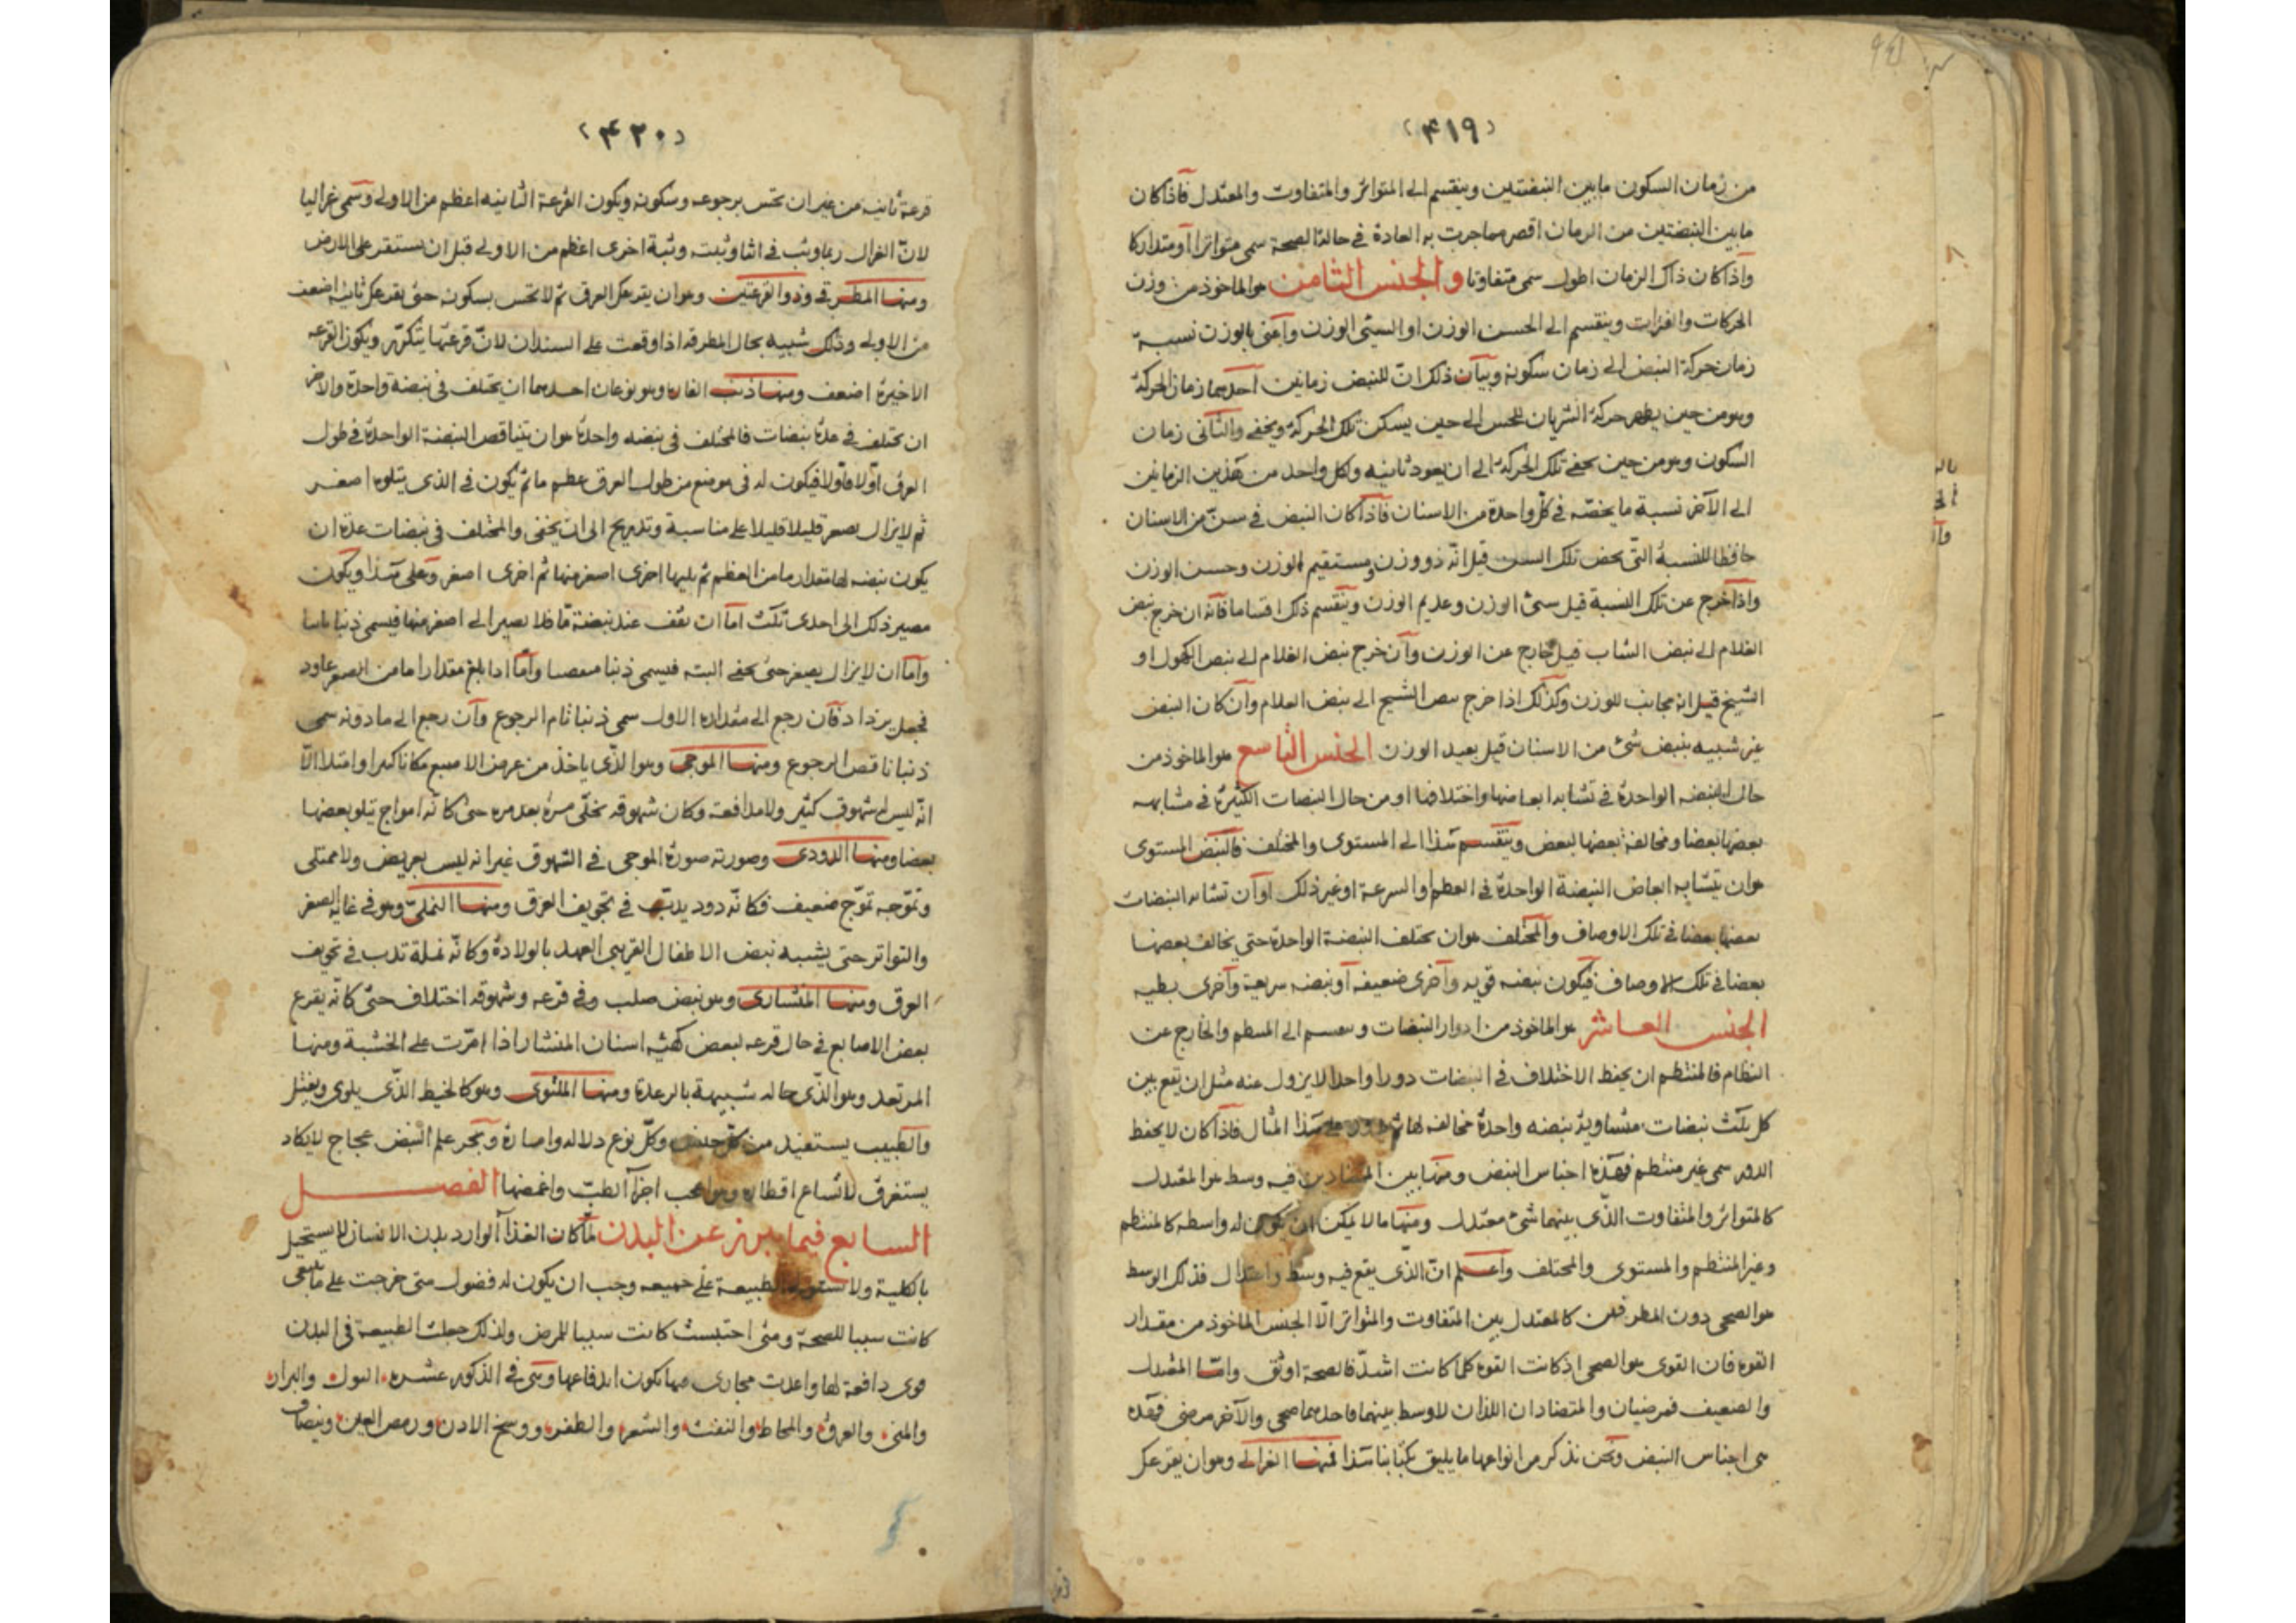 (۴۱۹)
من زمان السكون ما بين النبضتين وينقسم الى المتواتر والمتفاوت والمعتدل فاذا كان
ما بين النبضتين من الزمان اقصر مما جرت به العادة في حالة الصحة سمى متواترا او متداركا
واذا كان ذاك الزمان اطول سمى متفاوتا والجنس الثامن هو الماخوذ من وزن
الحركات والفترات وينقسم الى الحسن الوزن او السيئ الوزن واعنى بالوزن نسبة
زمان حركة النبض الى زمان سكونه وبيان ذلك ان للنبض زمانين احدهما زمان الحركة
وهو من حين يظهر حركة الشريان للحس الى حين يسكن تلك الحركة ويخفى والثانى زمان
السكون وهو من حين يخفى تلك الحركة الى ان يعود ثانيه وكل واحد من هذين الزمانين
الى الآخر نسبة ما يخصه في كل واحدة من الاسنان فاذا كان النبض في سن من الاسنان
حافظا للنسبة التى يخص تلك السن قيل انه ذو وزن ومستقيم الوزن وحسن الوزن
واذا خرج عن تلك النسبة قيل سئ الوزن وعديم الوزن وينقسم ذلك اقساما فانه ان خرج نبض
الغلام الى نبض الشاب قيل خارج عن الوزن وان خرج نبض الغلام الى نبض الكهول او
الشيخ قيل انه مجانب للوزن وكذلك اذا خرج نبض الشيخ الى نبض الغلام وان كان النبض
غير شبيه بنبض شئ من الاسنان قيل بعيد الوزن الجنس التاسع هو الماخوذ من
حال النبضه الواحدة في تشابه ابعاضها واختلافها او من حال النبضات الكثيرة في مشابهه
بعضها بعضا ومخالفة بعضها لبعض وينقسم هذا الى المستوى والمختلف فالنبض المستوى
هو ان يتشابه ابعاض النبضة الواحدة في العظم او السرعة او غير ذلك او ان تشابه النبضات
بعضها بعضا في تلك الاوصاف والمختلف هو ان يختلف النبضة الواحدة حتى يخالف بعضها
بعضا في تلك الاوصاف فيكون نبضه قويه واخرى ضعيفه او نبضه سريعة واخرى بطيه
الجنس العاشر هو الماخوذ من ادوار النبضات وينقسم الى المنتظم والخارج عن
النظام فالمنتظم ان يحفظ الاختلاف في النبضات دورا واحدا لا يزول عنه مثل ان يقع بين
كل ثلث نبضات متساوية نبضه واحدة مخالفه لها ثم على هذا المثال فاذا كان لا يحفظ
الدور سمى غير منتظم فهذه اجناس النبض ومنها بين المتضادين فيه وسط هو المعتدل
كالمتواتر والمتفاوت الذى بينهما شئ معتدل ومنها ما لا يمكن ان يكون له واسطه كالمنتظم
وغير المنتظم والمستوى والمختلف واعلم ان الذى يقع فيه وسط واعتدال فذلك الوسط
هو الصحى دون الطرفين كالمعتدل بين المتفاوت والمتواتر الا الجنس الماخوذ من مقدار
القوه فان القوى هو الصحى اذ كانت القوه كلما كانت اشد فالصحة اوثق واما المعتدل
والضعيف فمرضيان والمتضادان اللذان لا وسط بينهما فاحدهما صحى والآخر مرضى فهذه
هى اجناس النبض ونحن نذكر من انواعها ما يليق بكتابنا هذا فمنها الغزالى وهو ان يقرعك
(۴۲۰)
قرعة ثانيه من غير ان تحس برجوعه وسكونه ويكون القرعة الثانيه اعظم من الاولى وسمى غزاليا
لان الغزال ربما وثب في اثنا وثبته وثبة اخرى اعظم من الاولى قبل ان يستقر على الارض
ومنها المطرقى وذو القرعتين وهو ان يقرعك العرق ثم لا تحس بسكونه حتى يقرعك ثانيه اضعف
من الاولى وذلك شبيه بحال المطرقه اذا وقعت على السندان لان قرعتها يتكرر ويكون القرعه
الاخيرة اضعف ومنها ذنب الفار وهو نوعان احدهما ان يختلف في نبضة واحدة والآخر
ان يختلف في عدة نبضات فالمختلف في نبضه واحدة هو ان يتناقص النبضة الواحدة في طول
العرق اولا فاولا فيكون له في موضع من طول العرق عظم ما ثم يكون في الذى يتلوه اصغر
ثم لا يزال يصغر قليلا قليلا على مناسبة وتدريج الى ان يخفى والمختلف في نبضات عدة ان
يكون نبضه لها مقدار ما من العظم ثم يليها اخرى اصغر منها ثم اخرى اصغر وعلى هذا ويكون
مصير ذلك الى احدى ثلث اما ان تقف عند نبضة ما فلا يصير الى اصغر منها فيسمى ذنبا ثابتا
واما ان لا يزال يصغر حتى يخفى البته فيسمى ذنبا منقضيا واما اذا بلغ مقدارا ما من الصغر عاود
فجعل يزداد فان رجع الى مقداره الاول سمى ذنبا تام الرجوع وان رجع الى ما دونه سمى
ذنبا ناقص الرجوع ومنها الموجى وهو الذى ياخذ من عرض الاصبع مكانا كبيرا وامتلا الا
انه ليس له شهوق كثير ولا مدافعة وكان شهوقه يخلى مرة بعد مره حتى كانه امواج يتلو بعضها
بعضا ومنها الدودى وصورته صورة الموجى في الشهوق غير انه ليس بعريض ولا ممتلى
وتموجه تموج ضعيف فكانه دود يدب في تجويف العرق ومنها النملى وهو في غاية الصغر
والتواتر حتى يشبه نبض الاطفال القريبى العهد بالولادة وكانه نملة تدب في تجويف
العرق ومنها المنشارى وهو نبض صلب وفي قرعه وشهوقه اختلاف حتى كانه يقرع
بعض الاصابع في حال قرعه لبعض كهيئه اسنان المنشار اذا امرت على الخشبة ومنها
المرتعد وهو الذى حاله شبيهة بالرعدة ومنها الملتوى وهو كالخيط الذى يلوى ويفتل
والطبيب يستفيد من كل جنس وكل نوع دلاله وامارة وبحر علم النبض عجاج لا يكاد
يستغرق لاتساع اقطاره وهو اعجب اجزآ الطب واغمضها الفصل
السابع فيما يبرز عن البدن لما كان الغذآ الوارد بدن الانسان لا يستحيل
بالكلية ولا الطبيعة على جميعه وجب ان يكون له فضول متى خرجت على ما ينبغى
كانت سببا للصحة ومتى احتبست كانت سببا للمرض ولذلك جعلت الطبيعة في البدن
قوى دافعة لها واعدت مجارى منها يكون اندفاعها وهى في الذكور عشره البول والبراز
والمنى والعرق والمخاط والنفث والشعر والظفر ووسخ الاذن ورمص العين وينضاف